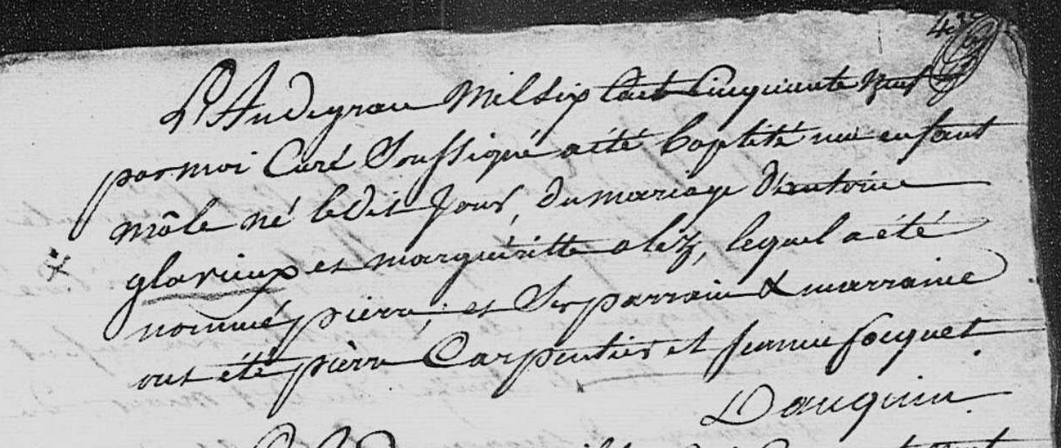 L'An de grace Mil Six Cent Cinquante neuf
par moi Curé Soussigné a été baptisé un enfant
mâle né ledit Jour, du mariage d'antoine
glorieux et marguéritte alez, lequel a été
nommé pierre; et Ses parrain & marraine
ont été pierre Carpentier et jeanne focquet
Dauquin.